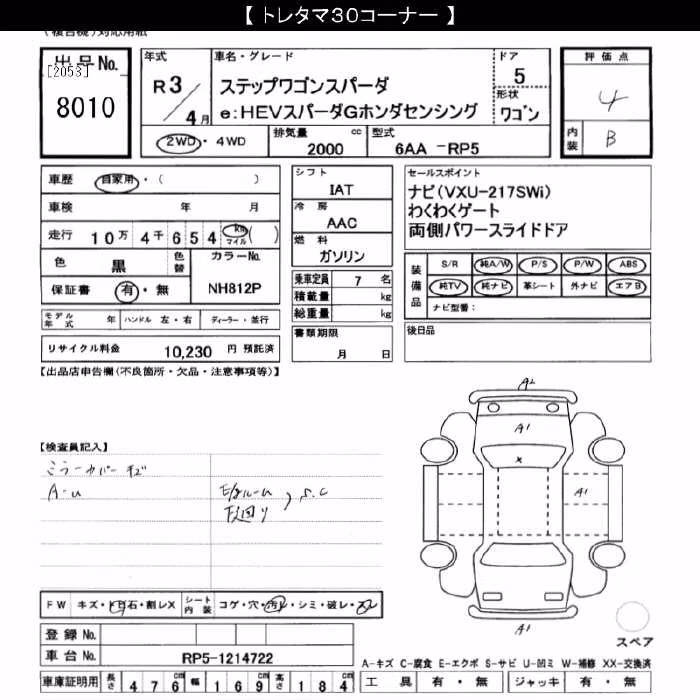 【 トレタマ30コーナー 】
(複合機)対応用紙
出品No.
[2053]
8010
年式
R 3 / 4 月
車名・グレード
ステップワゴンスパーダ
e:HEVスパーダGホンダセンシング
ドア
5
形状
ワゴン
評価点
4
内装
B
2WD・4WD
排気量 cc
2000
型式
6AA -RP5
車歴 自家用・( )
車検 年 月
走行 10万 4千 6 5 4 km マイル ( )
色 黒 色替 カラーNo.
保証書 有・無 NH812P
モデル年式 年 ハンドル 左・右 ディーラー・並行
リサイクル料金 10,230 円 預託済
シフト
IAT
冷房
AAC
燃料
ガソリン
乗車定員 7 名
積載量 kg
総重量 kg
書類期限
月 日
セールスポイント
ナビ(VXU-217SWi)
わくわくゲート
両側パワースライドドア
装備品
S/R 純A/W P/S P/W ABS
純TV 純ナビ 革シート 外ナビ エアB
ナビ型番:
後日品
【出品店申告欄(不良箇所・欠品・注意事項等)】
【検査員記入】
ミラーカバーキズ
A-u
E/gルーム
下廻り
S.C
A2
A1
x
A1
A1
スペア
FW キズ・トビ石・割レX シート内装 コゲ・穴・汚レ・シミ・破レ・スレ
登録No.
車台No. RP5-1214722
車庫証明用 長さ 476 cm 幅 169 cm 高さ 184 cm
A-キズ C-腐食 E-エクボ S-サビ U-凹ミ W-補修 XX-交換済
工具 有・無 ジャッキ 有・無